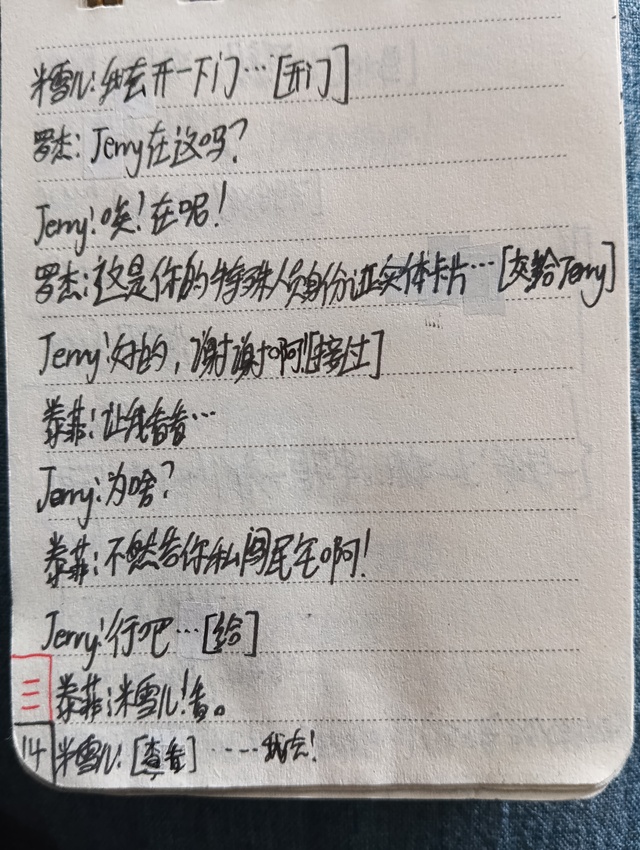 米雪儿:我去开一下门…[开门]
罗杰:Jerry在这吗?
Jerry:唉!在呢!
罗杰:这是你的特殊人员身份证实体卡片…[交给Jerry]
Jerry:好的,谢谢啊![接过]
泰菲:让我看看…
Jerry:为啥?
泰菲:不然告你私闯民宅啊!
Jerry:行吧…[给]
三 泰菲:米雪儿!看。
14 米雪儿:[查看]……我去!